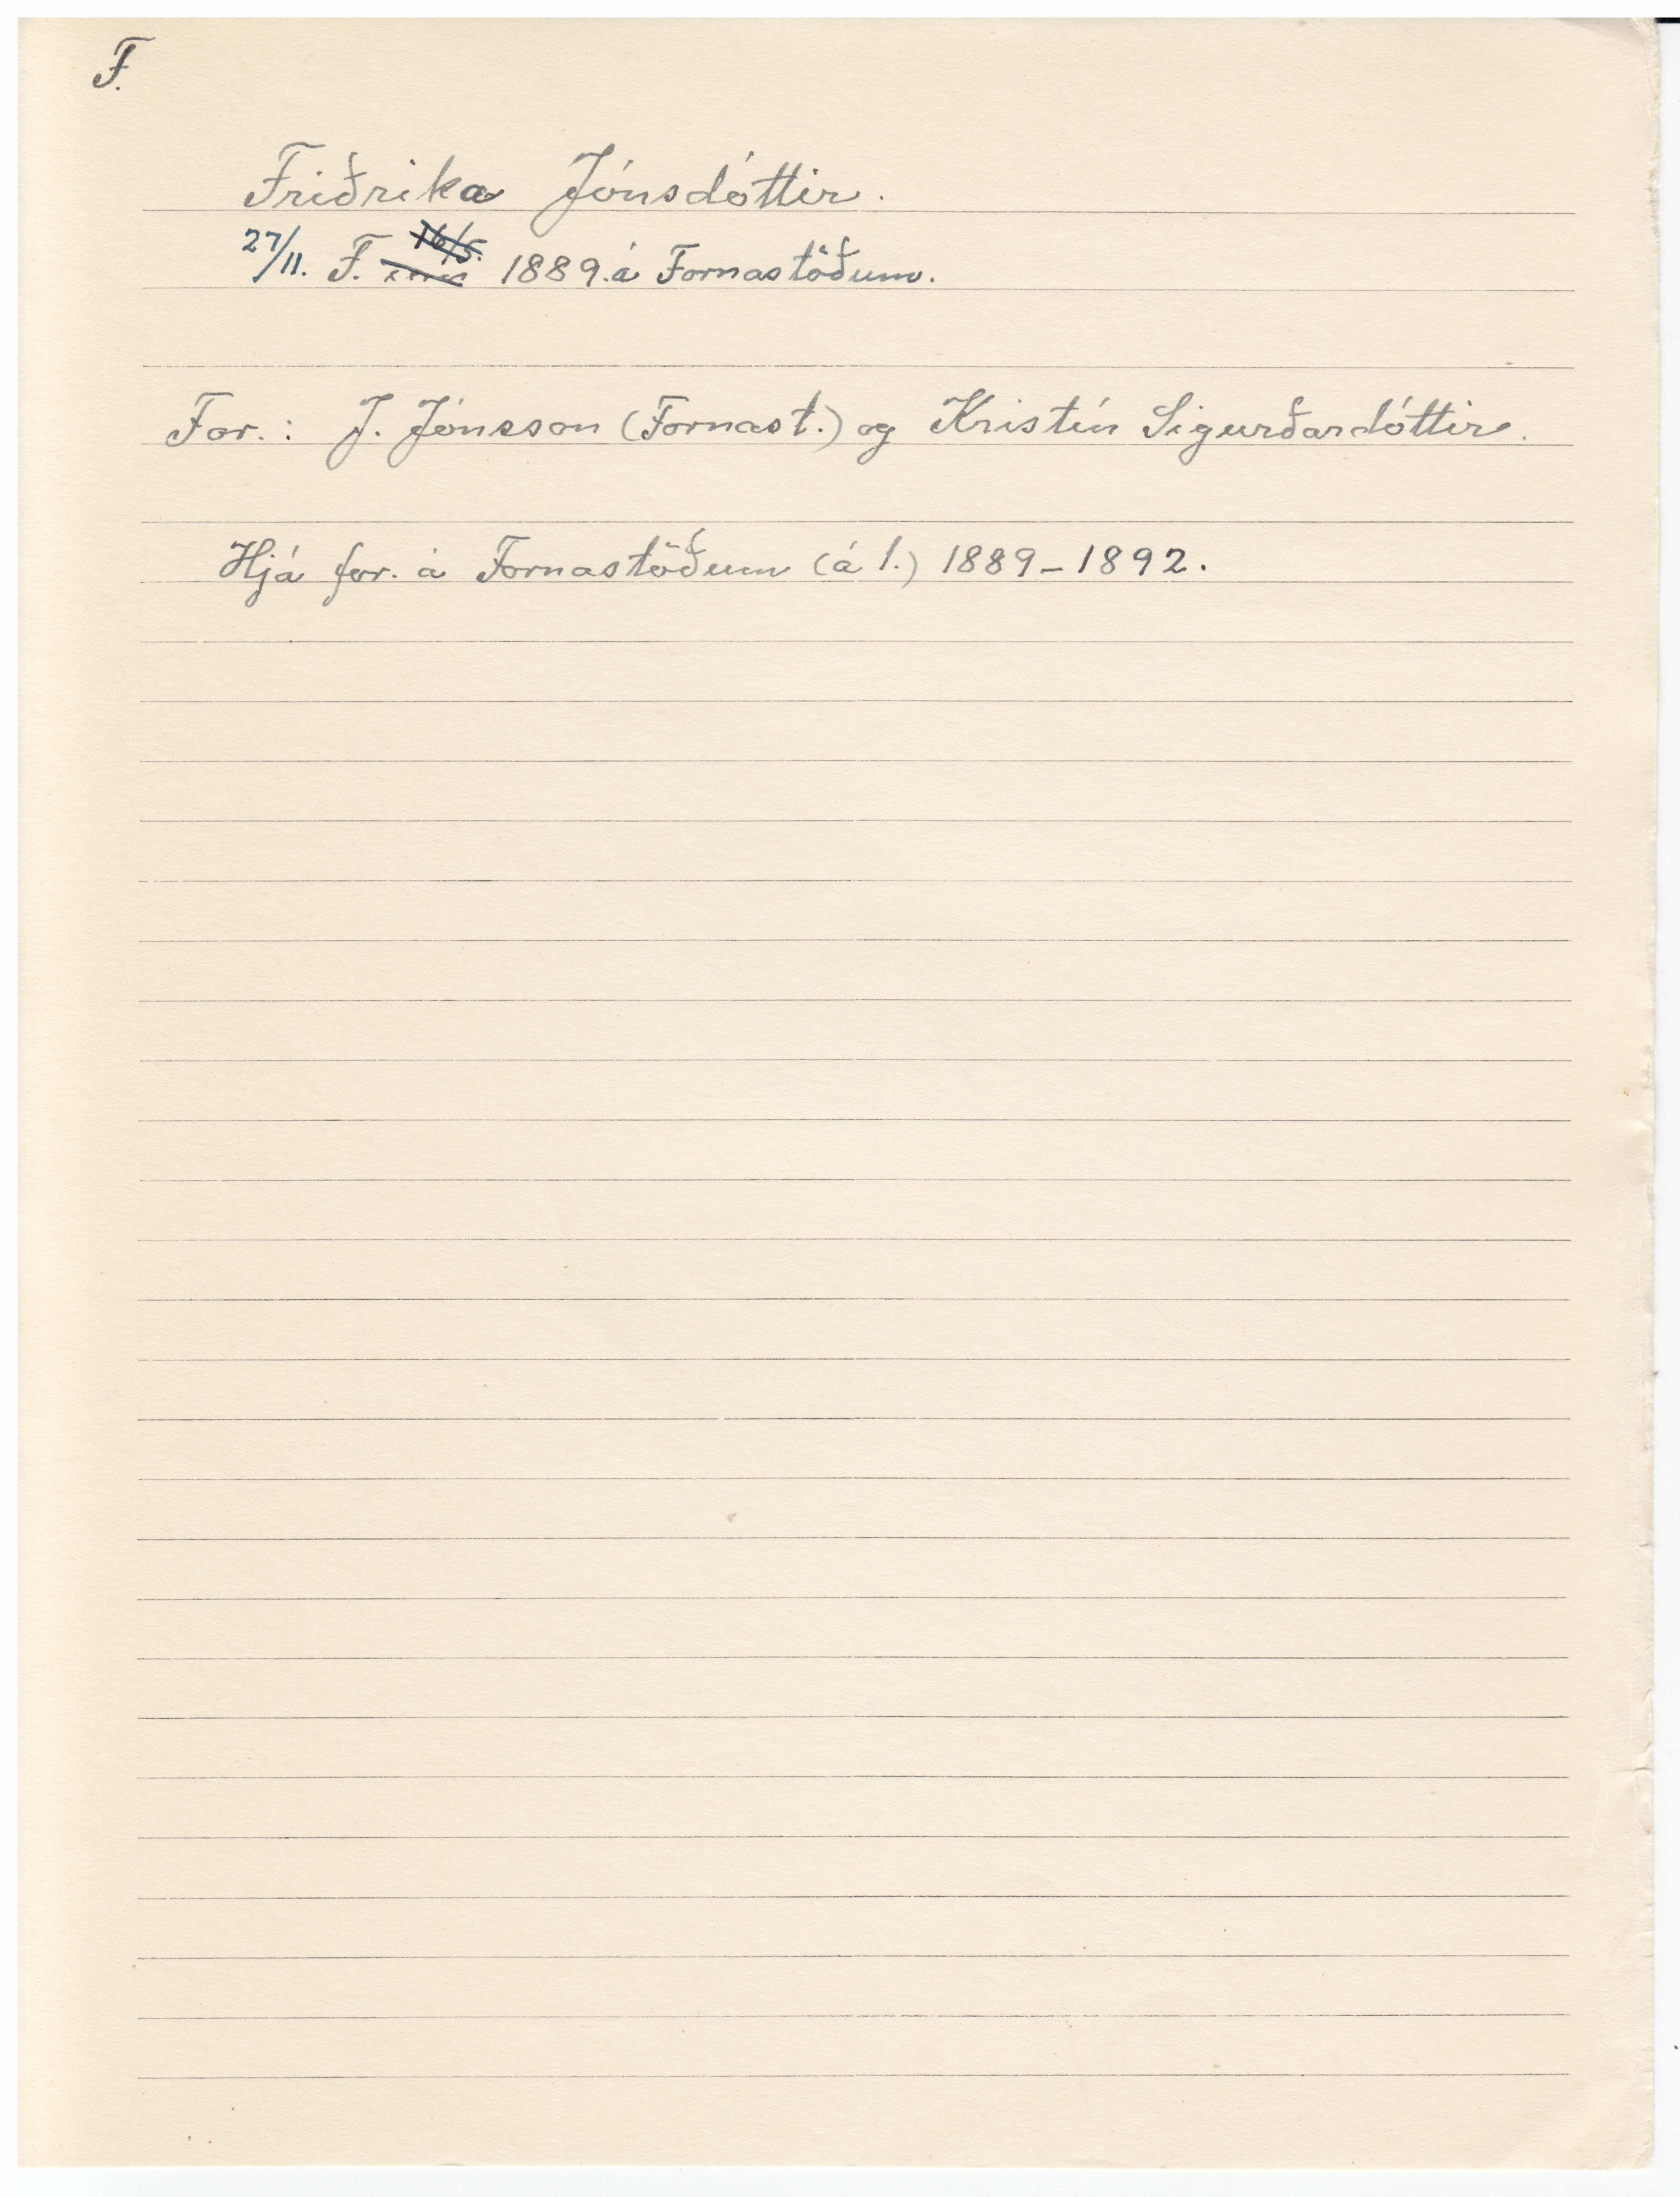 F.
Friðrika Jónsdóttir.
27/11. F. 16/5. 1889. á Fornastöðum.
For.: J. Jónsson (Fornast.) og Kristín Sigurðardóttir.
Hjá for. á Fornastöðum (á 1.) 1889-1892.